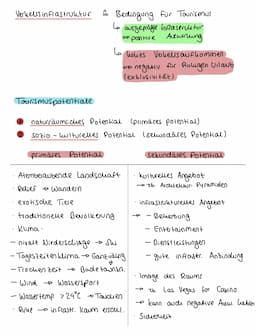 Verkehrsinfrastruktur & Bedingung für Tourismus
↳ ausgeprägte Infrastruktur
→ positive Auswirkung
↳ hohes Verkehrsaufkommen
→ negativ für Ruhigen Urlaub
(exklusivität)
Tourismuspotentiale
naturräumliches Potential (primäres potential)
sozio-kulturelles Potential (sekundäres Potential)
primäres Potential
· Atemberaubende Landschaft
· Relief → Wandern
· exotische Tiere
· traditionelle Bevölkerung
· Klima
- nivale Niederschläge → Ski
- Tageszeitenklima → Ganzjährig
- Trockenzeit → Badetourism.
- Wind → Wassersport
- Wassertemp > 24°C → Tauchen
· Ruhe → infrastr. kaum erschl.
sekundäres Potential
· kulturelles Angebot
→ zB Architektur Pyramiden
· infrastrukturelles Angebot
- Beherbung
- Entertainment
- Dienstleistungen
- gute infrastr. Anbindung
· Image des Raums
→ zB Las Vegas für Casino
→ kann auch negative Ausw. haben
· Sicherheit